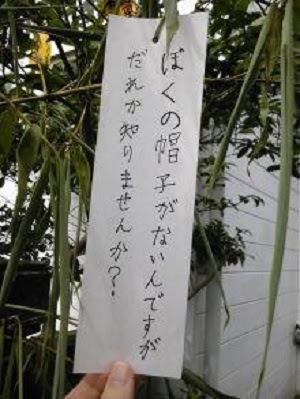 ぼくの帽子がないんですが
だれか知りませんか?